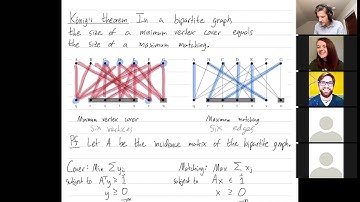 König's theorem In a bipartite graph
the size of a minimum vertex cover equals
the size of a maximum matching.
Minimum vertex cover
Maximum matching
six vertices
six edges
Pf Let A be the incidence matrix of the bipartite graph.
Cover: Min Σ yⱼ
Matching: Max Σ xⱼ
subject to Aᵀy ≥ 1
subject to Ax ≤ 1
y ≥ 0
x ≥ 0